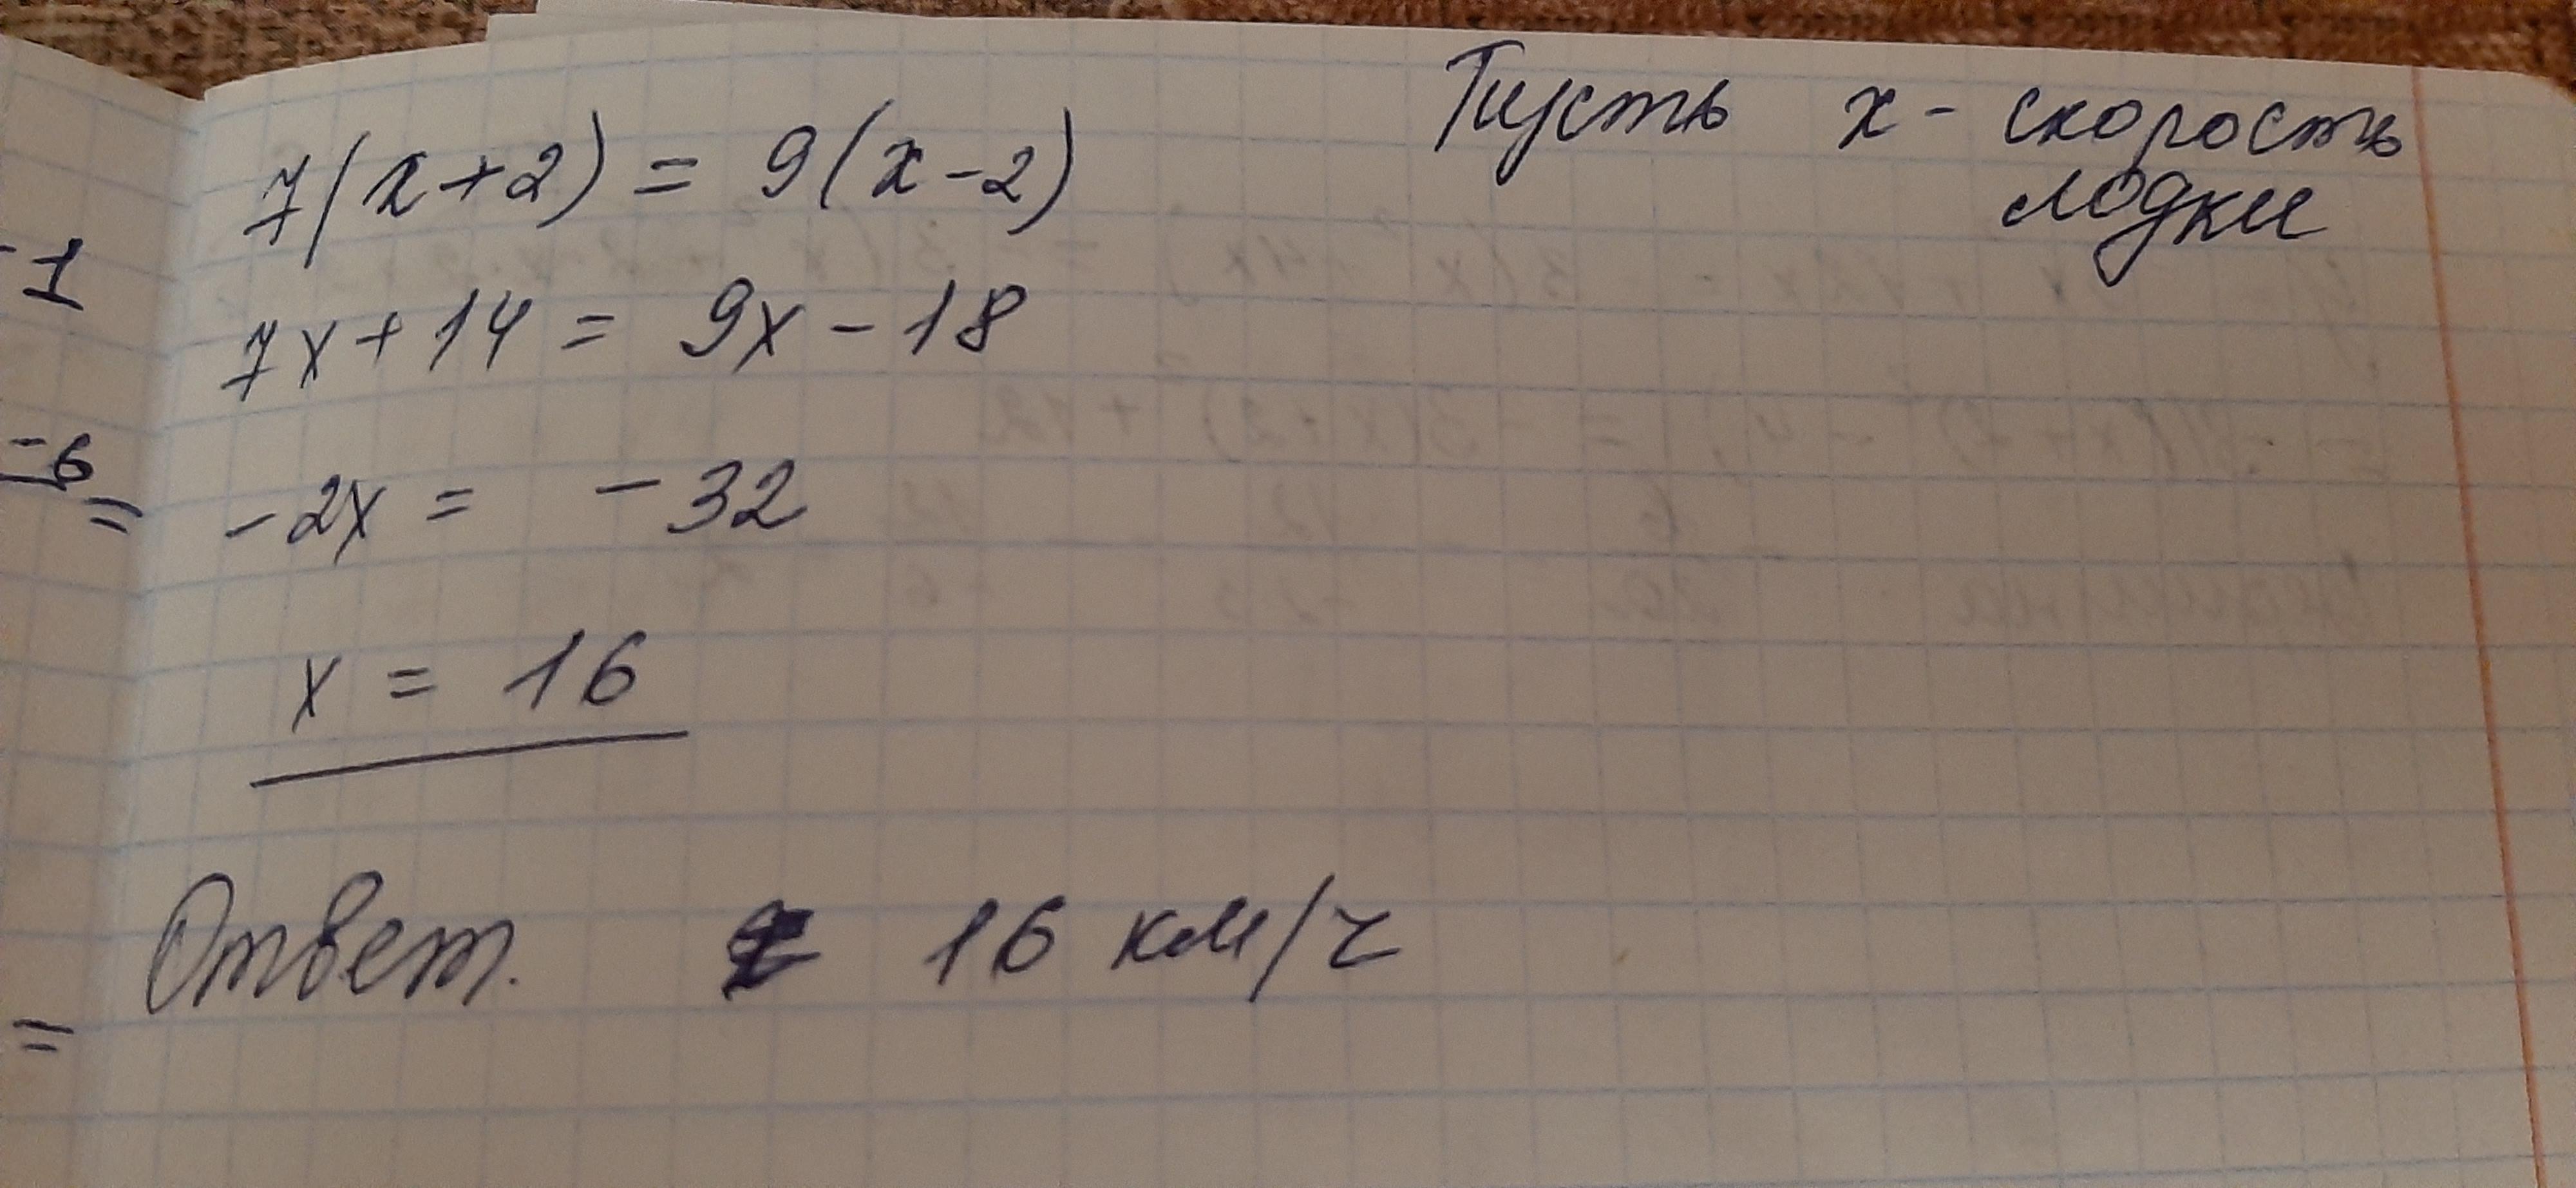 7(x+2) = 9(x-2)
Пусть x - скорость
лодки
7x+14 = 9x-18
-2x = -32
x = 16
Ответ. 16 км/ч
-1
-6
=
=